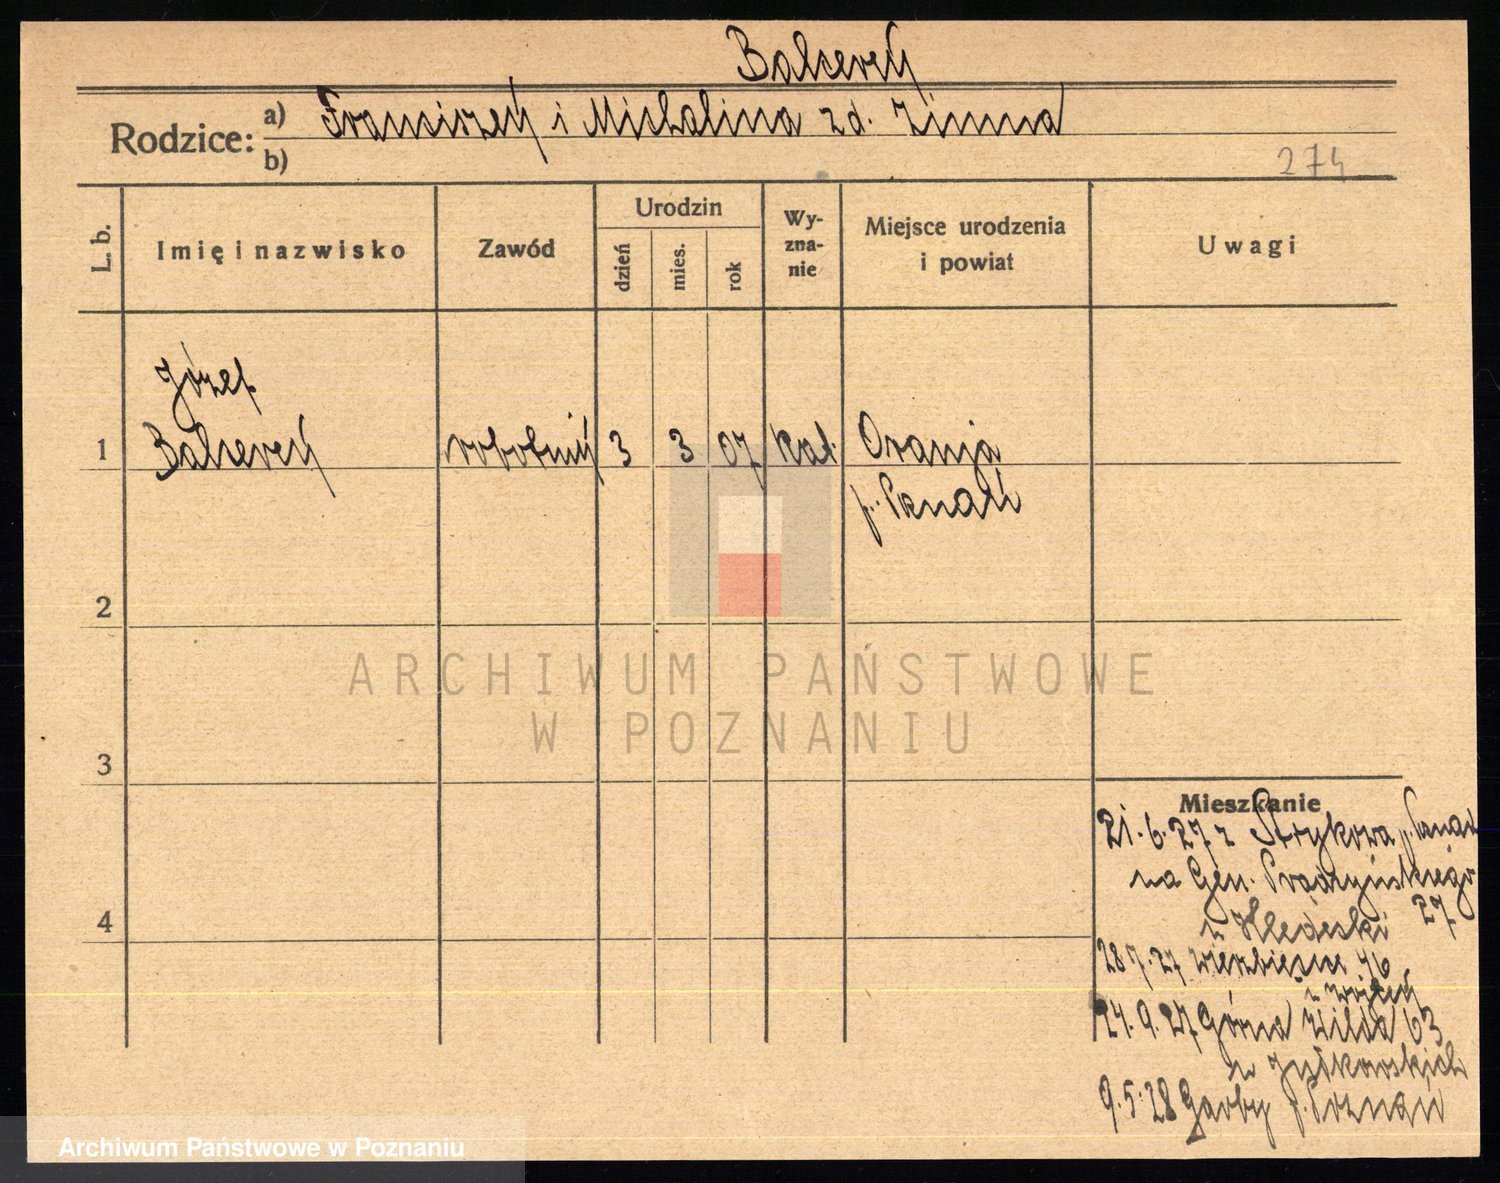 Balcerek
Rodzice: a) Franciszek i Michalina zd. Zimna
b)
274
L. b.
Imię i nazwisko
Zawód
Urodzin
dzień
mies.
rok
Wy-
zna-
nie
Miejsce urodzenia
i powiat
Uwagi
Józef
1 Balcerek robotnik 3 3 07 kat.
p. Poznań
2
3
4
ARCHIWUM PAŃSTWOWE
W POZNANIU
Mieszkanie
21.6.27 z Strykowa p. Poznań
na Gen. Prądzyńskiego
27
u
28.7.27 Wierzbięcice 46
u
24.9.27 Górna Wilda 63
u
9.5.28 Garby p. Poznań
Archiwum Państwowe w Poznaniu